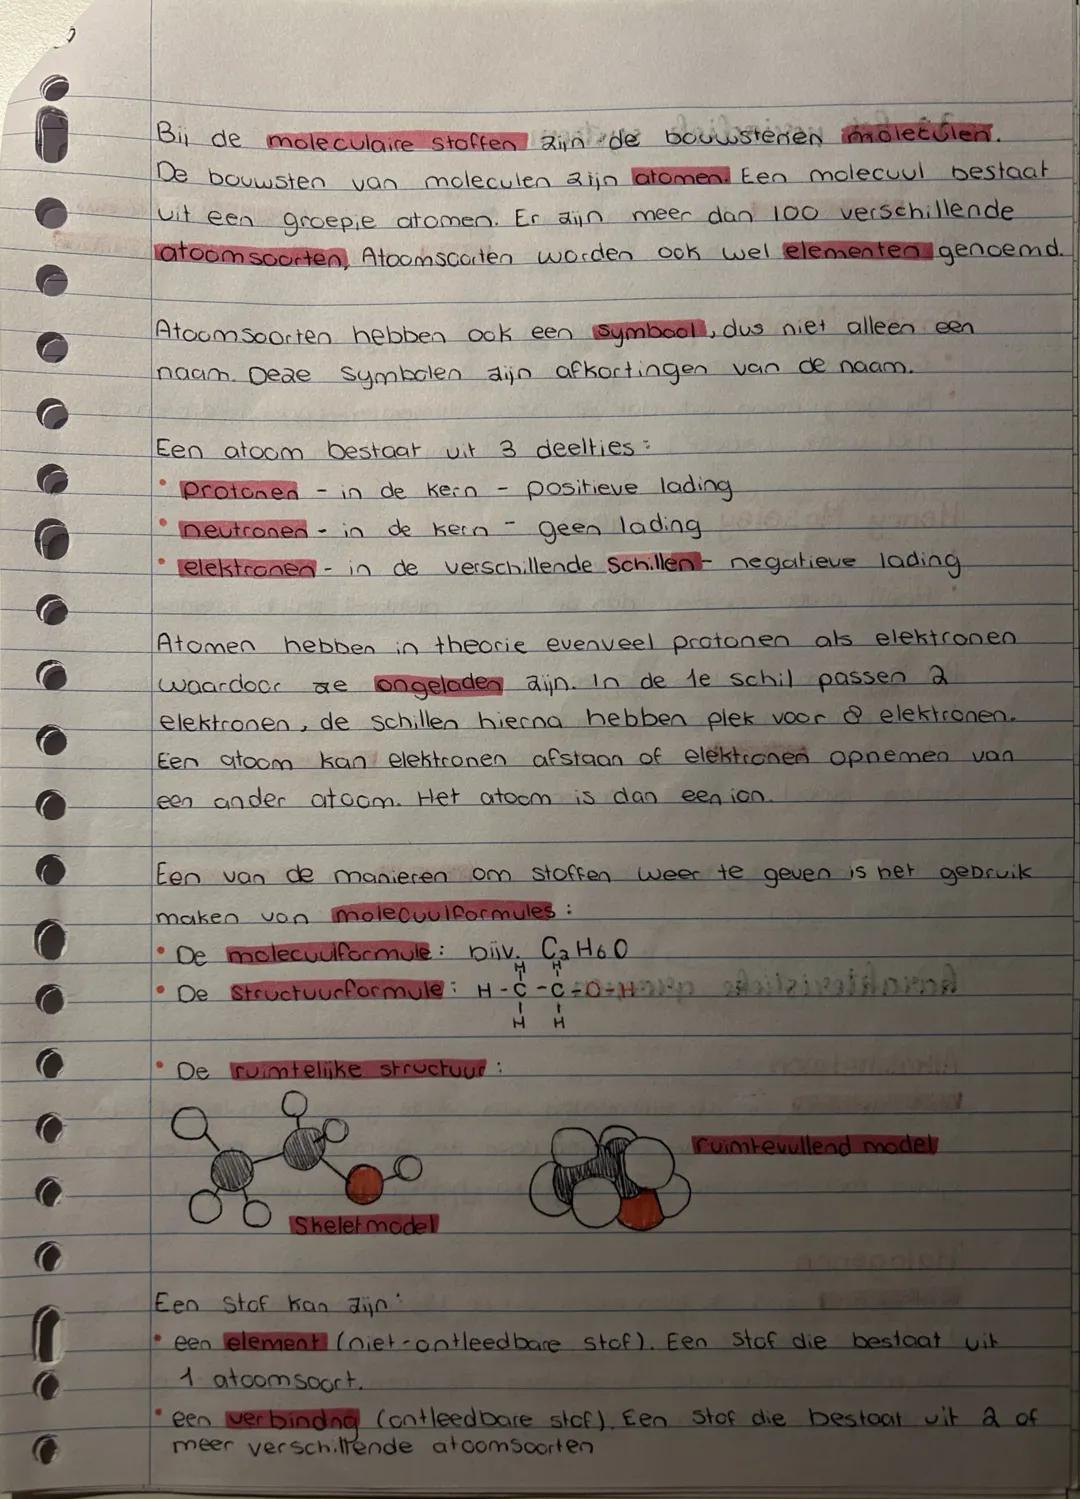 Bij de moleculaire stoffen zijn de bouwstenen moleculen.
De bouwsten van moleculen zijn atomen. Een molecuul bestaat
uit een groepje atomen. Er zijn meer dan 100 verschillende
atoomsoorten, Atoomsoorten worden ook wel elementen genoemd.
Atoomsoorten hebben ook een symbool, dus niet alleen een
naam. Deze symbolen zijn afkortingen van de naam.
Een atoom bestaat uit 3 deeltjes:
• protonen - in de kern - positieve lading
• neutronen - in de kern - geen lading
• elektronen - in de verschillende schillen - negatieve lading
Atomen hebben in theorie evenveel protonen als elektronen
waardoor ze ongeladen zijn. In de 1e schil passen 2
elektronen, de schillen hierna hebben plek voor 8 elektronen.
Een atoom kan elektronen afstaan of elektronen opnemen van
een ander atoom. Het atoom is dan een ion.
Een van de manieren om stoffen weer te geven is het gebruik
maken van molecuulformules:
• De molecuulformule: bijv. C2H6O
H H
• De structuurformule: H-C-C-O-H
H H
• De ruimtelijke structuur:
ruimtevullend model
Skeletmodel
Een stof kan zijn:
• een element (niet-ontleedbare stof). Een stof die bestaat uit
1 atoomsoort.
• een verbindng (ontleedbare stof). Een stof die bestaat uit 2 of
meer verschillende atoomsoorten